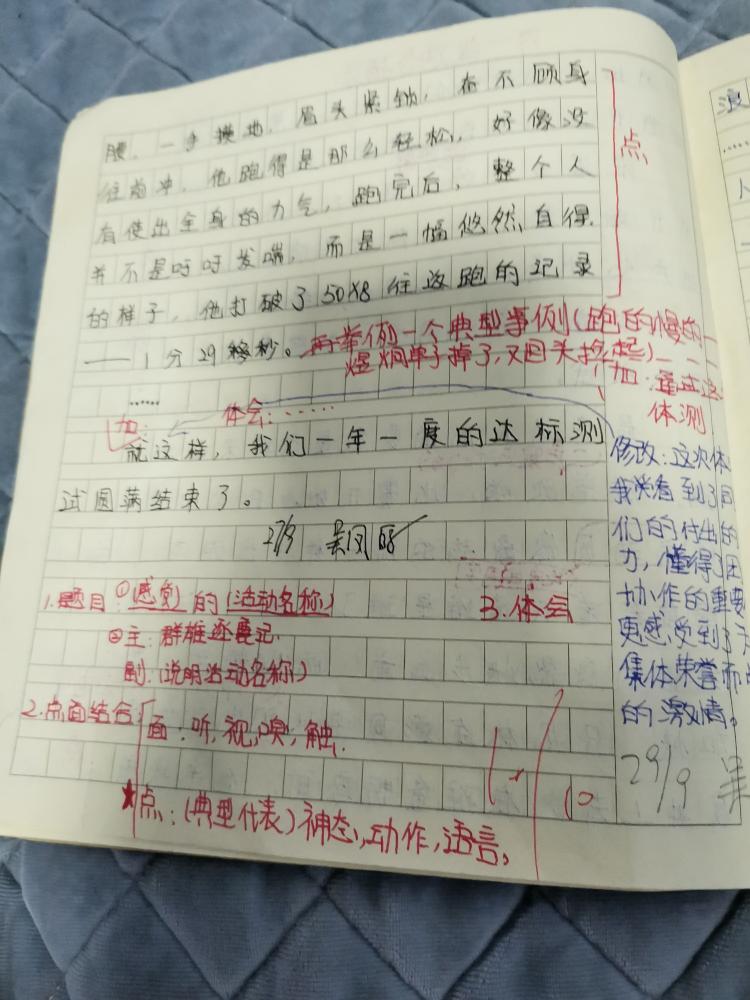 腰，一手撑地，眉头紧锁，奋不顾身
往前冲，他跑得是那么轻松，好像没
有使出全身的力气，跑完后，整个人
并不是呼呼发喘，而是一幅悠然自得
的样子，他打破了50X8往返跑的记录
——1分29秒。再举例一个典型事例(跑的慢的一
掉了，又回头捡起)———
点
……
加：
体会：……
加：通过这
体测
就这样，我们一年一度的达标测
试圆满结束了。
27/9
修改：这次体
我 看到了同
们的付出的
力，懂得了团
协作的重要
更感受到了
集体荣誉而
的激情。
29/9 吴
1.题目：①(感觉)的(活动名称)
②主：群雄逐鹿记
副：(说明活动名称)
3.体会
2.点面结合
面：听，视，嗅，触.
★点：(典型代表)神态，动作，语言，